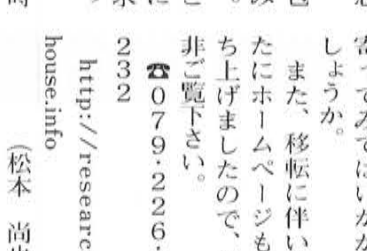 寄ってみてはいかが
しょうか。
また、移転に伴い
たにホームページも
ち上げましたので、
非ご覧下さい。
☎079・226・
232
http://researc
house.info
(松本 尚